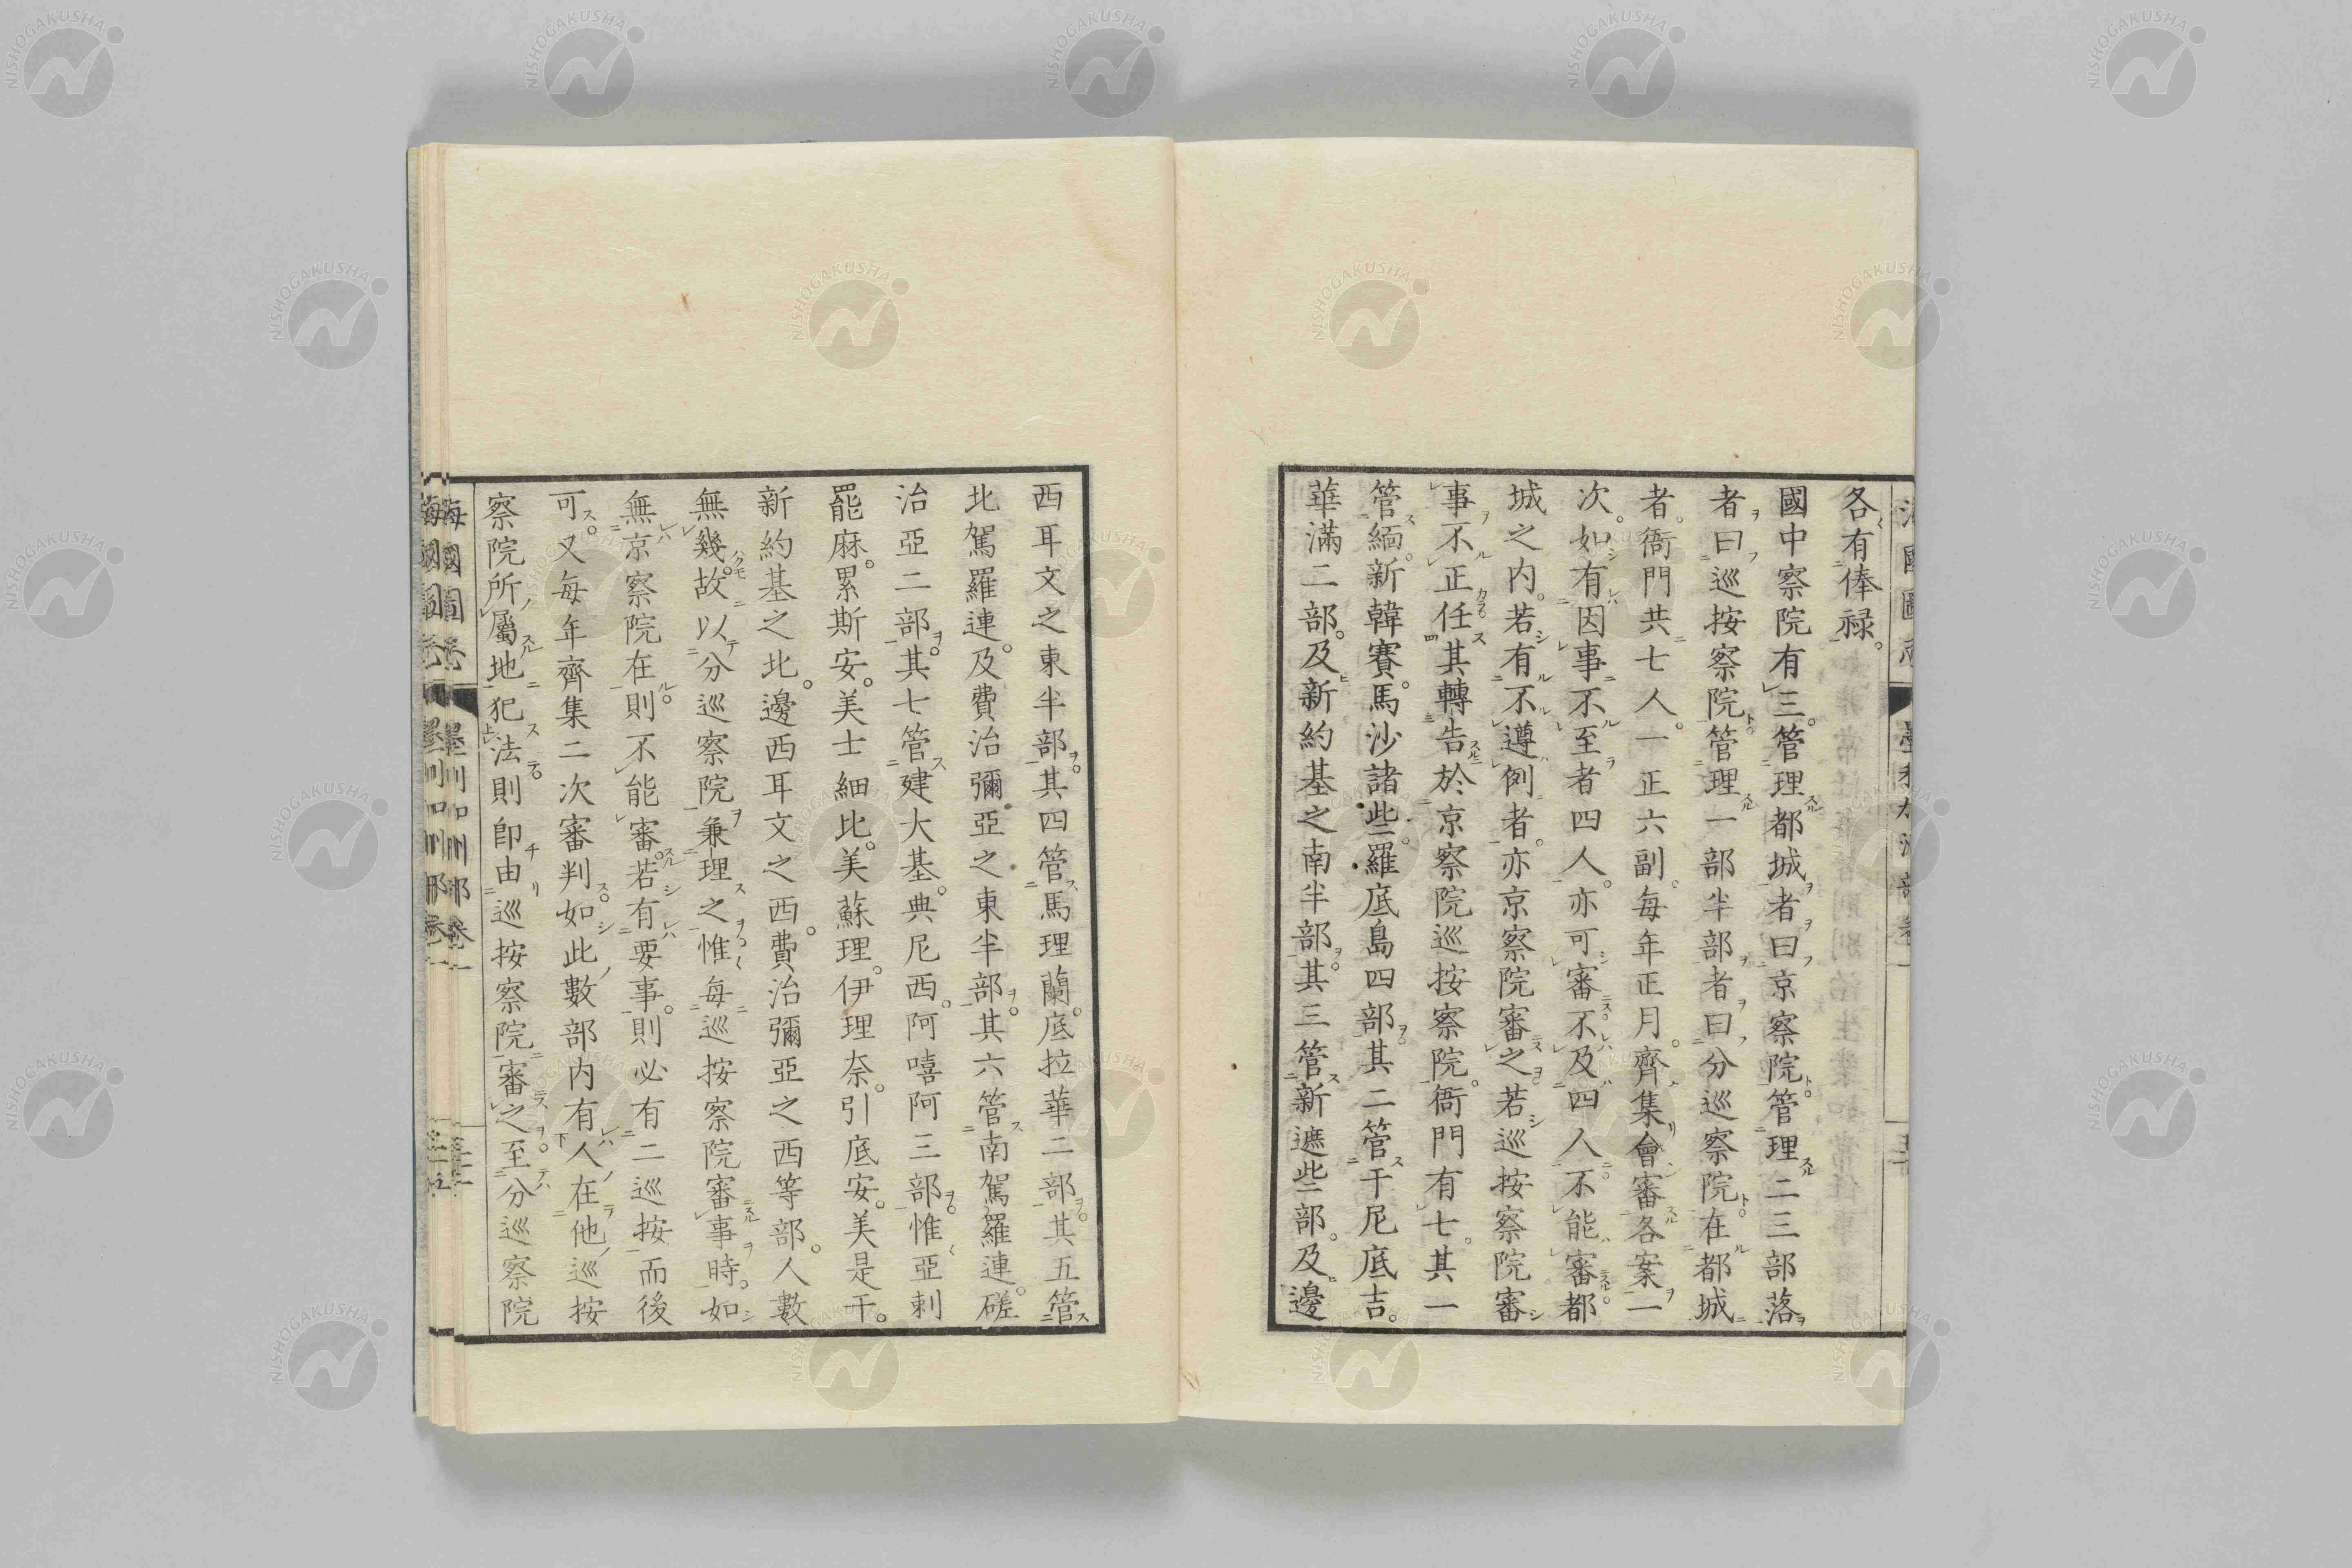 各有俸祿。
國中察院有三。管理都城者曰京察院。管理二三部落
者曰巡按察院。管理一部半部者曰分巡察院。在都城
者。衙門共七人。一正六副。每年正月。齊集會審各案一
次。如有因事不至者四人。亦可審。不及四人。不能審。都
城之内。若有不遵例者。亦京察院審之。若巡按察院審
事不正任其轉告於京察院巡按察院。衙門有七。其一
管緬。新韓賽。馬沙諸些。羅底島四部。其二管干尼底吉。
華滿二部。及新約基之南半部。其三管新遮些二部。及邊
西耳文之東半部。其四管馬理蘭。底拉華二部。其五管
北駕羅連。及費治彌亞之東半部。其六管南駕羅連。磋
治亞二部。其七管建大基。典尼西。阿嘻阿三部。惟亞剌
罷麻。累斯安。美士細比。美蘇理。伊理奈。引底安。美是干。
新約基之北。邊西耳文之西。費治彌亞之西等部。人數
無幾。故以分巡察院兼理之。惟每巡按察院審事時。如
無京察院在。則不能審。若有要事。則必有二巡按而後
可。又每年齊集二次審判。如此數部内有人在他巡按
察院所屬地犯法。則即由巡按察院審之。至分巡察院
NISHOGAKUSHA